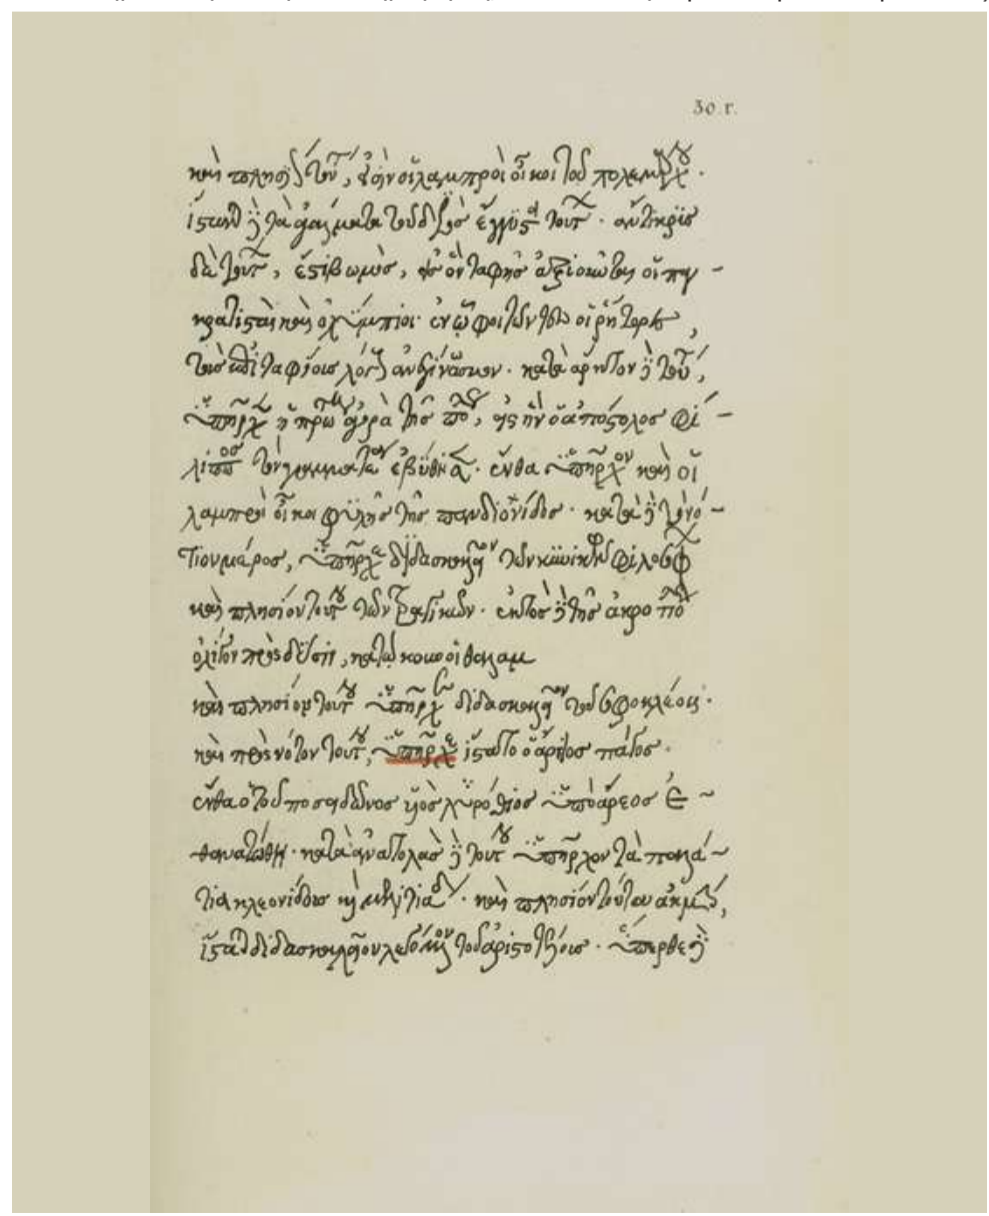 30.r.
καὶ πλησίον τούτ, ἦσαν οἱ λαμπροὶ οἶκοι τοῦ πολεμάρχου.
ἵσταντο δὲ τὰ τοῦ διὸς ἐγγὺς τούτ. ἄντικρυς
δὲ τούτ, ἐστὶ βωμὸς, εἰς ὃν ταφῆς ἀξιοῦνται οἱ παγ-
κρατισταὶ καὶ ὀλύμπιοι· ἐν ᾧ φοιτῶντες οἱ ῥήτορες,
τοὺς ἐπιταφίους λόγους ἀνεγίνωσκον. κατὰ ἄρκτον δὲ τούτ,
ὑπῆρχ ἡ πρώτη ἀγορὰ τῆς πόλ, εἰς ἣν ὁ ἀπόστολος φί-
λιππος τὸν γραμματέα ἐβύθισε. ἔνθα ὑπῆρχον καὶ οἱ
λαμπροὶ οἶκοι φυλῆς τῆς πανδιονίδος. κατὰ δὲ τὸ νό-
τιον μέρος, ὑπῆρχε διδασκαλεῖον τῶν κυνικῶν φιλοσόφ
καὶ πλησίον τούτου τῶν τραγικῶν. ἐκτὸς δὲ τῆς ἀκροπόλ
ὀλίγον πρὸς δύσιν, κατῴκουν οἱ
καὶ πλησίον τούτου ὑπῆρχεν διδασκαλεῖον τοῦ σοφοκλέους.
καὶ πρὸς νότον τούτου, ὑπῆρχε ἵστατο ὁ ἄρειος πάγος.
ἔνθα ὁ τοῦ ποσειδῶνος υἱὸς ἁλιρρόθιος ὑπὸ ἄρεος ἐ-
θανατώθη. κατὰ ἀνατολὰς δὲ τούτου ὑπῆρχον τὰ παλά-
τια κλεονίδους καὶ μιλτιάδου. καὶ πλησίον τούτου ἀκμὴν,
ἵσταται διδασκαλεῖον λεγόμενον τοῦ ἀριστοτέλους. ὕπερθε δὲ